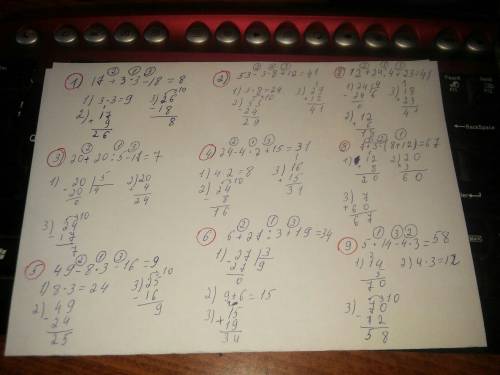 1) 17 + 3·3 - 18 = 8
1) 3·3 = 9
2) + 17
9
26
3) 26
- 18
8
2) 53 - 3·8 + 12 = 41
1) 3·8 = 24
2) 53
- 24
29
3) 29
+ 12
41
12 + 24 : 4 + 23 = 41
3) 20 + 20 : 5 - 17 = 7
1) 20 | 5
20 | 4
0
2) 20
+ 4
24
3) 24
- 17
7
4) 24 - 4·2 + 15 = 31
1) 4·2 = 8
2) 24
- 8
16
3) 16
+ 15
31
(8+12) = 67
1) 12
8
20
2) 20
3
60
3) 7
+ 60
67
5) 49 - 8·3 - 16 = 9
1) 8·3 = 24
2) 49
- 24
25
3) 25
- 16
9
6) 6 + 27 : 3 + 19 = 34
1) 27 | 3
- 27 | 9
0
2) 9 + 6 = 15
3) 15
+ 19
34
9) 5·14 - 4·3 = 58
1) 14
5
70
2) 4·3 = 12
3) 70
- 12
58